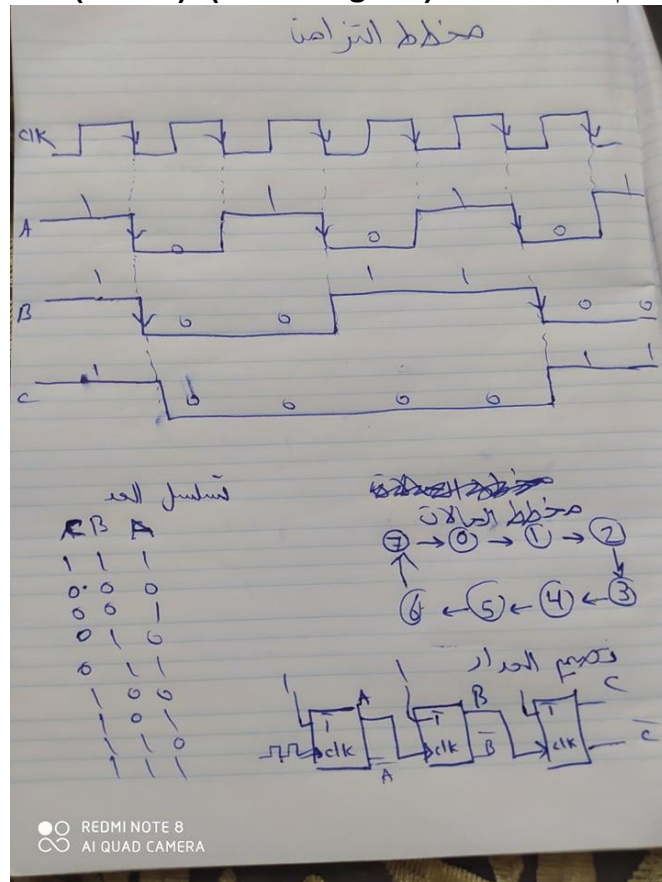 مخطط التزامن
CLK
A 1 0 1 0 1 0 1
B 1 0 0 1 1 0 0
C 1 0 0 0 0 1 1
تسلسل العد
C B A
1 1 1
0 0 0
0 0 1
0 1 0
0 1 1
1 0 0
1 0 1
1 1 0
1 1 1
مخطط الحالات
7 → 0 → 1 → 2
6 ← 5 ← 4 ← 3
العداد
1 1 1
A B C
T T T
clk clk clk
A̅ B̅ C̅
REDMI NOTE 8
AI QUAD CAMERA